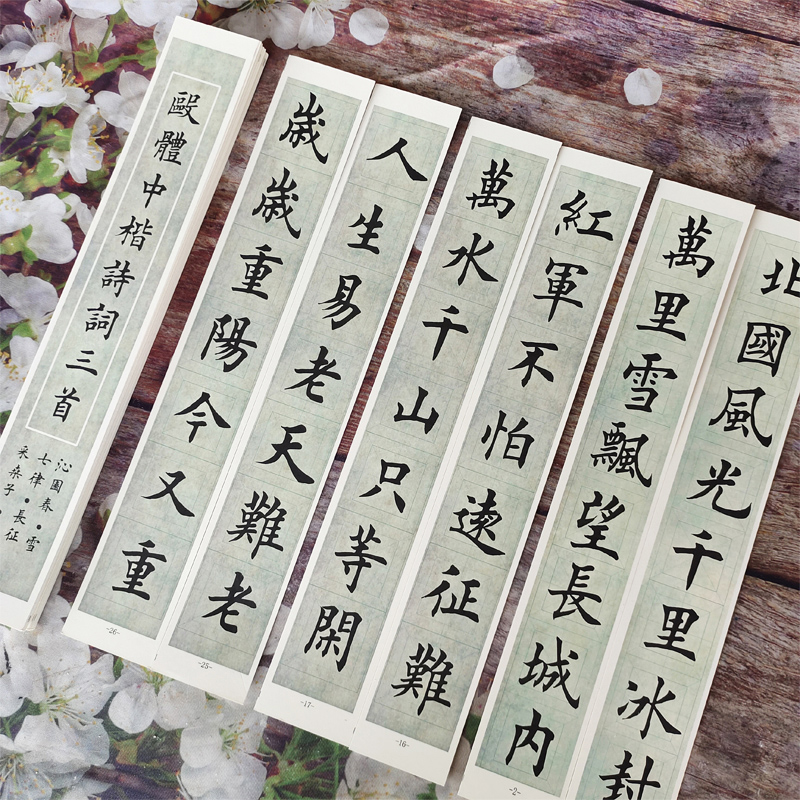 北國風光千里冰封
萬里雪飄望長城内
-2-
紅軍不怕遠征難
-16-
萬水千山只等閑
-17-
人生易老天難老
-25-
歲歲重陽今又重
-26-
毆體中楷詩詞三首
沁園春·雪
七律·長征
采桑子·